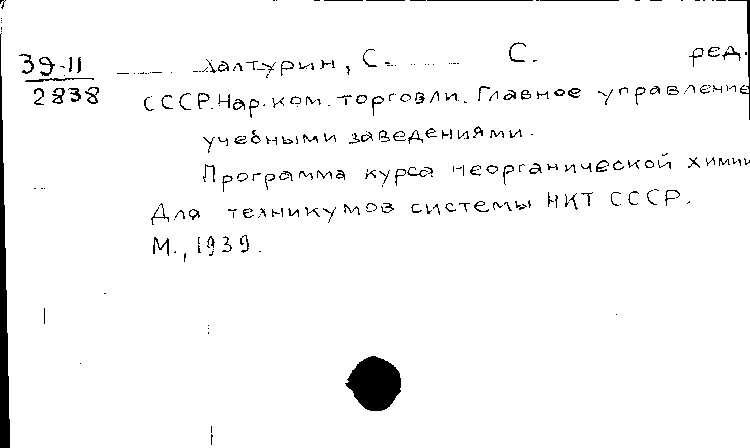 39-11 Халтурин, С. С. ред.
2838
СССР. Нар. ком. торговли. Главное управление
учебными заведениями.
Программа курса неорганической химии
Для техникумов системы НКТ СССР.
М., 1939.